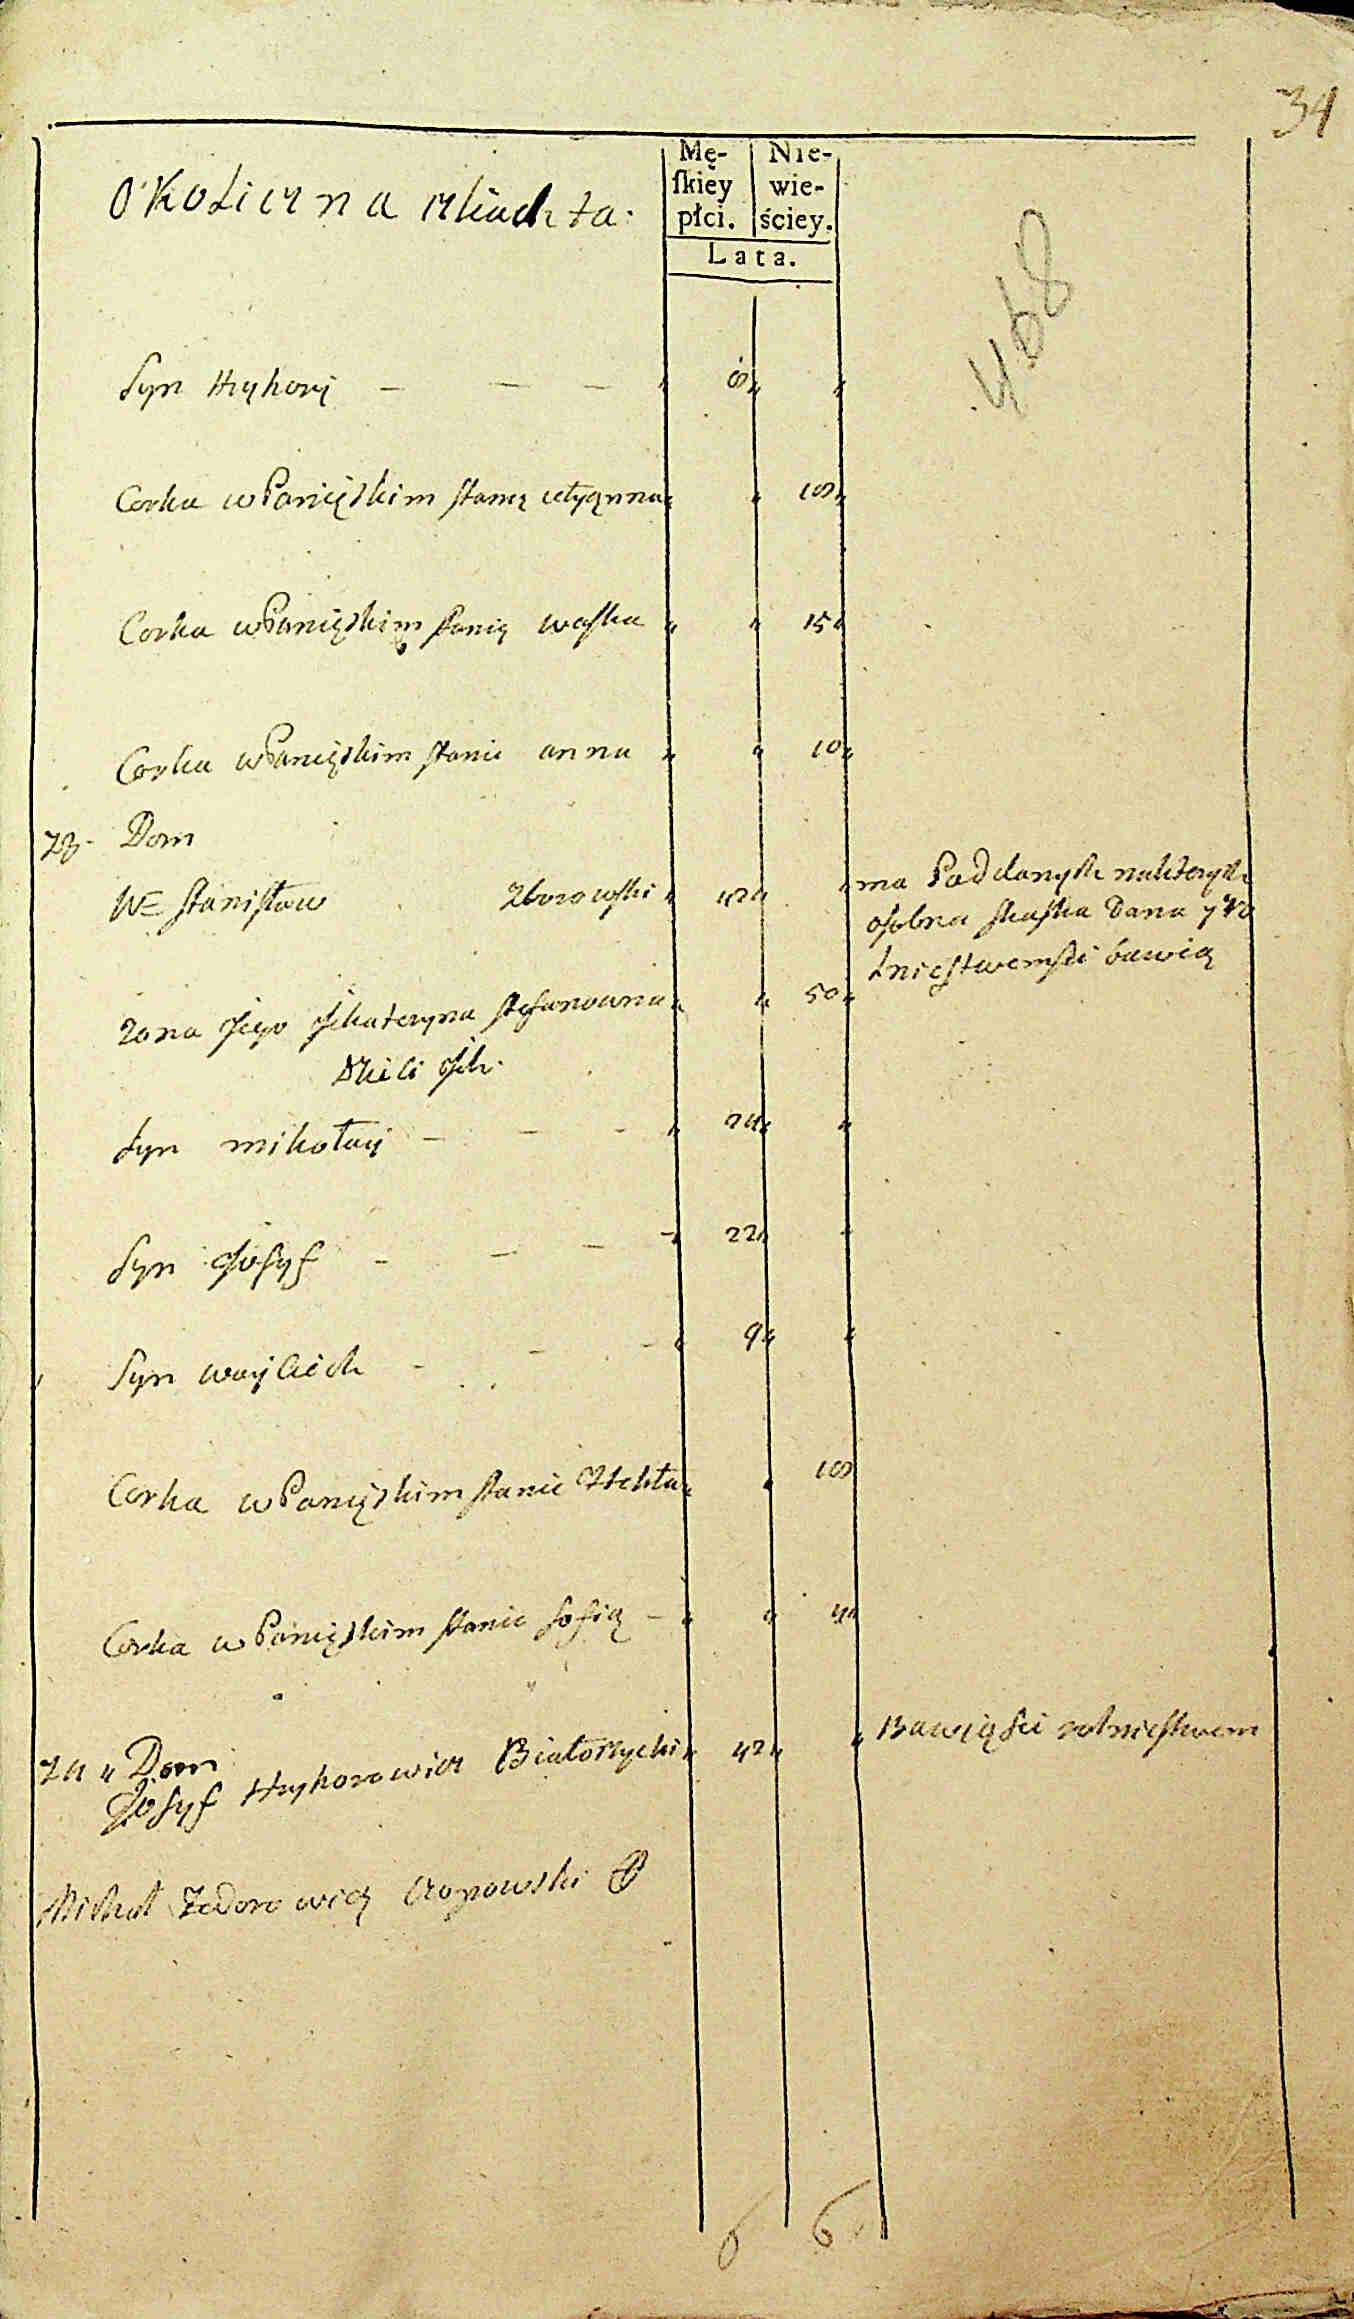 34
Okoliczna szliachta.
Mę-
ſkiey
płci.
Nie-
wie-
ściey.
Lata.
468
Syn Hryhory — — — " 8 " "
Corka w Panięskim stanię " " 18 "
Corka w Panięskim stanię waska " " 15 "
Corka w Panięskim stanie anna " " 10 "
73. Dom
WE Stanisław Zborowski " 42 " "
ma Poddanych naktorych
osobna skaska Dana y Ro
lnictwemsie bawią
zona Jego Jekateryna Stefanowna " " 50 "
Dzieci Jch.
Syn mikołay — — — " 24 " "
Syn Josyf — — — " 22 " "
Syn woyciech — — — " 9 " "
Corka w Panięskim stanie Thekla " " 18
Corka w Panięskim stanie sofią — " " 4 "
74 " Dom
Josyf Hryhorowicz Białoszycki " 42 " "
Bawiąsie rolnictwem
Michał Fedorowicz
6 6